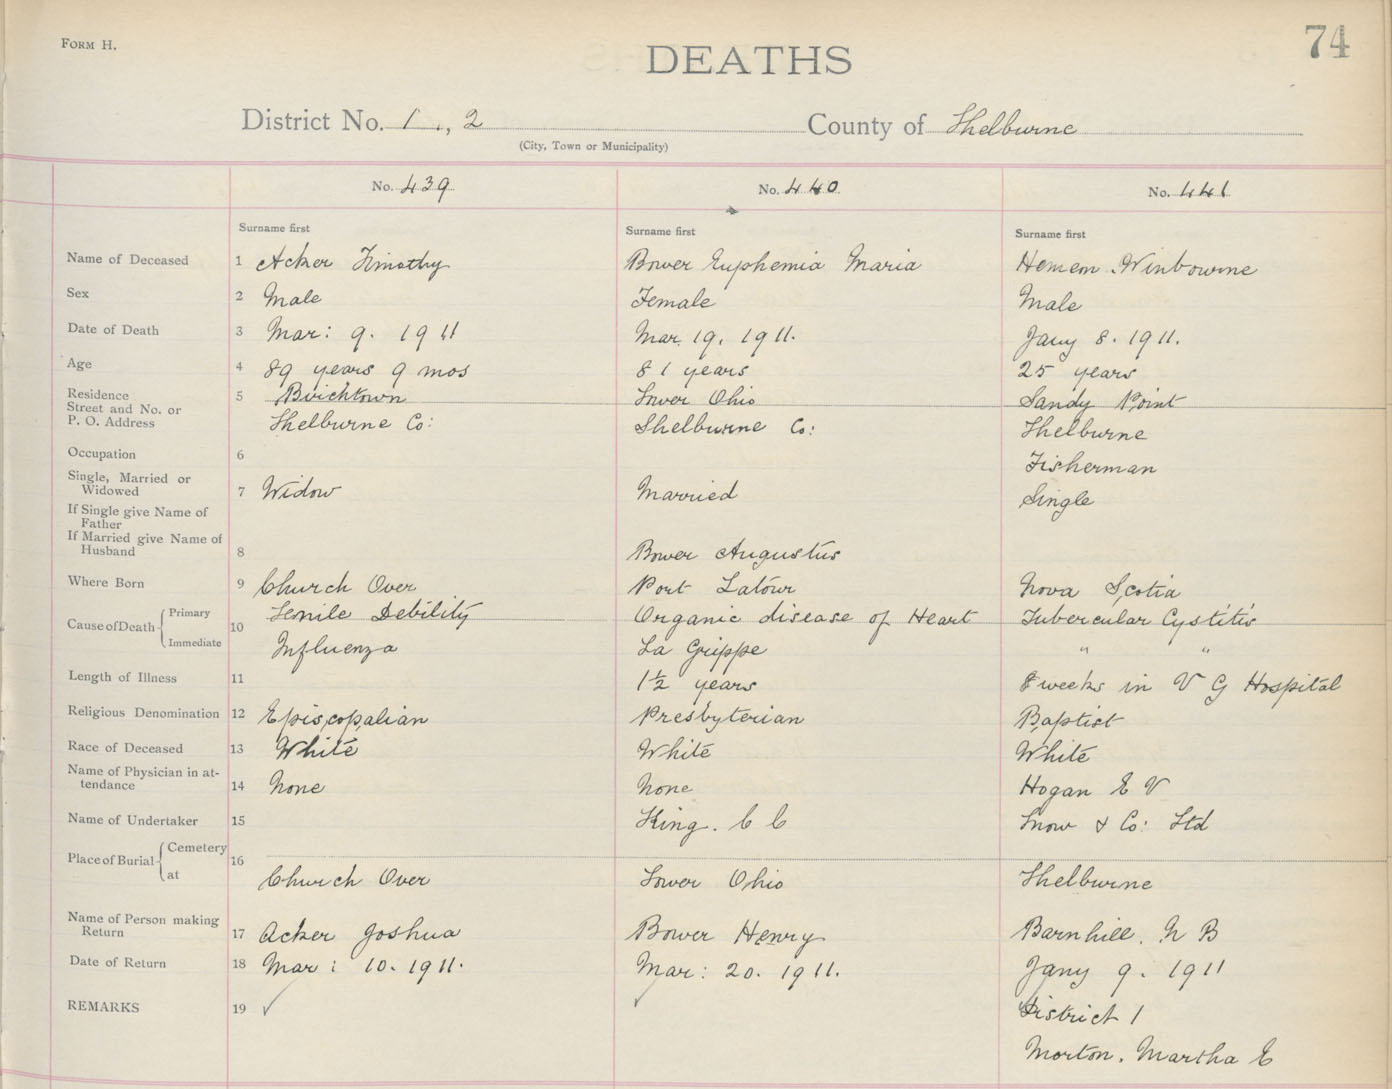 FORM H.
74
DEATHS
District No. 1., 2 County of Shelburne
(City, Town or Municipality)
No. 439 No. 440 No. 441
Surname first Surname first Surname first
Name of Deceased 1 Acker Timothy Bower Euphemia Maria Hemeon Winbourne
Sex 2 Male Female Male
Date of Death 3 Mar: 9. 1911 Mar. 19, 1911. Jany 8. 1911.
Age 4 89 years 9 mos 81 years 25 years
Residence 5 Birchtown Lower Ohio Sandy Point
Street and No. or
P. O. Address Shelburne Co: Shelburne Co: Shelburne
Occupation 6 Fisherman
Single, Married or
Widowed 7 Widow Married Single
If Single give Name of
Father
If Married give Name of
Husband 8 Bower Augustus
Where Born 9 Church Over Port Latour Nova Scotia
Cause of Death Primary 10 Senile Debility Organic disease of Heart Tubercular Cystitis
Immediate Influenza La Grippe " "
Length of Illness 11 1½ years 8 weeks in V G Hospital
Religious Denomination 12 Episcopalian Presbyterian Baptist
Race of Deceased 13 White White White
Name of Physician in at-
tendance 14 None None Hogan E V
Name of Undertaker 15 King. C C Snow & Co: Ltd
Place of Burial Cemetery 16
at Church Over Lower Ohio Shelburne
Name of Person making
Return 17 Acker Joshua Bower Henry Barnhill. N B
Date of Return 18 Mar: 10. 1911. Mar: 20. 1911. Jany 9. 1911
REMARKS 19 ✓ ✓ District 1
Morton. Martha E